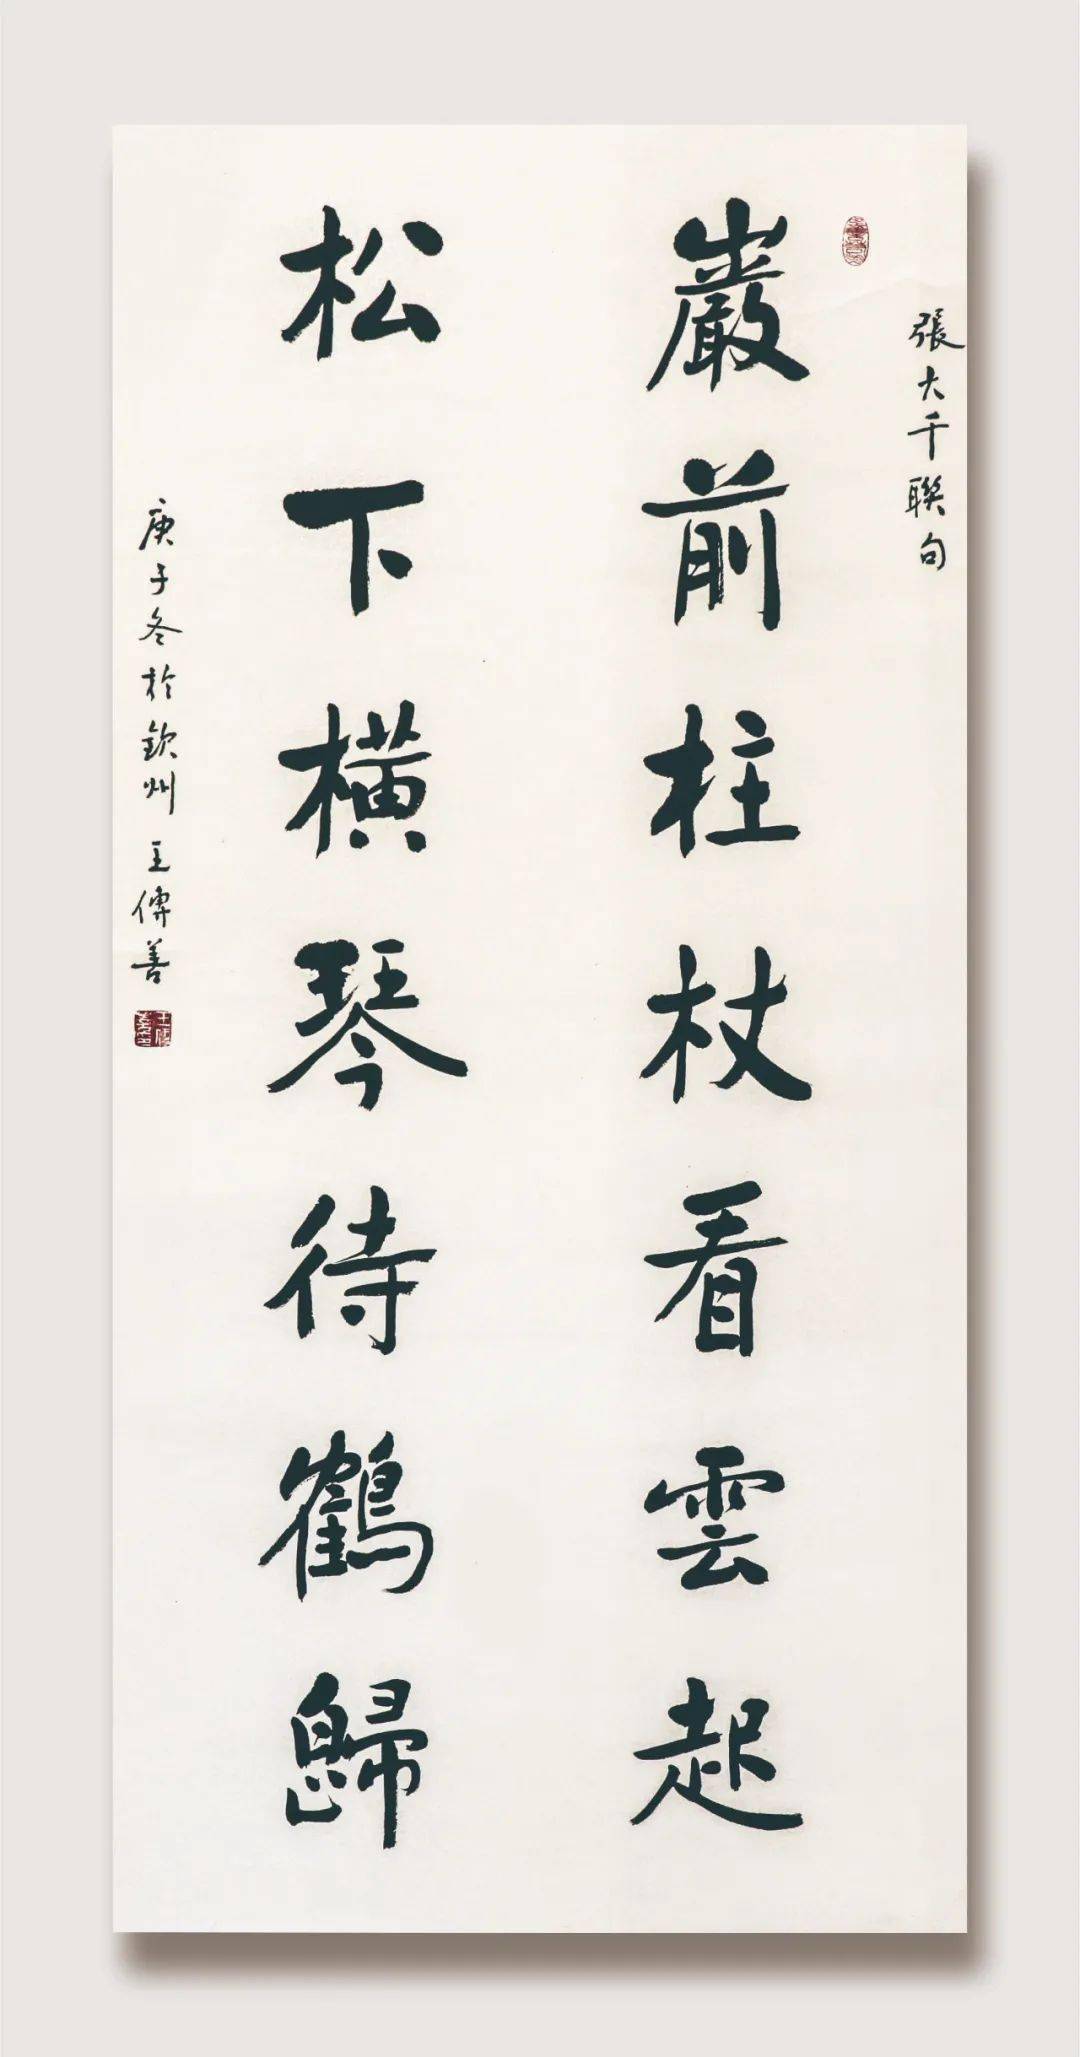 張大千聯句
巖前柱杖看雲起
松下橫琴待鶴歸
庚子冬於欽州王傳善